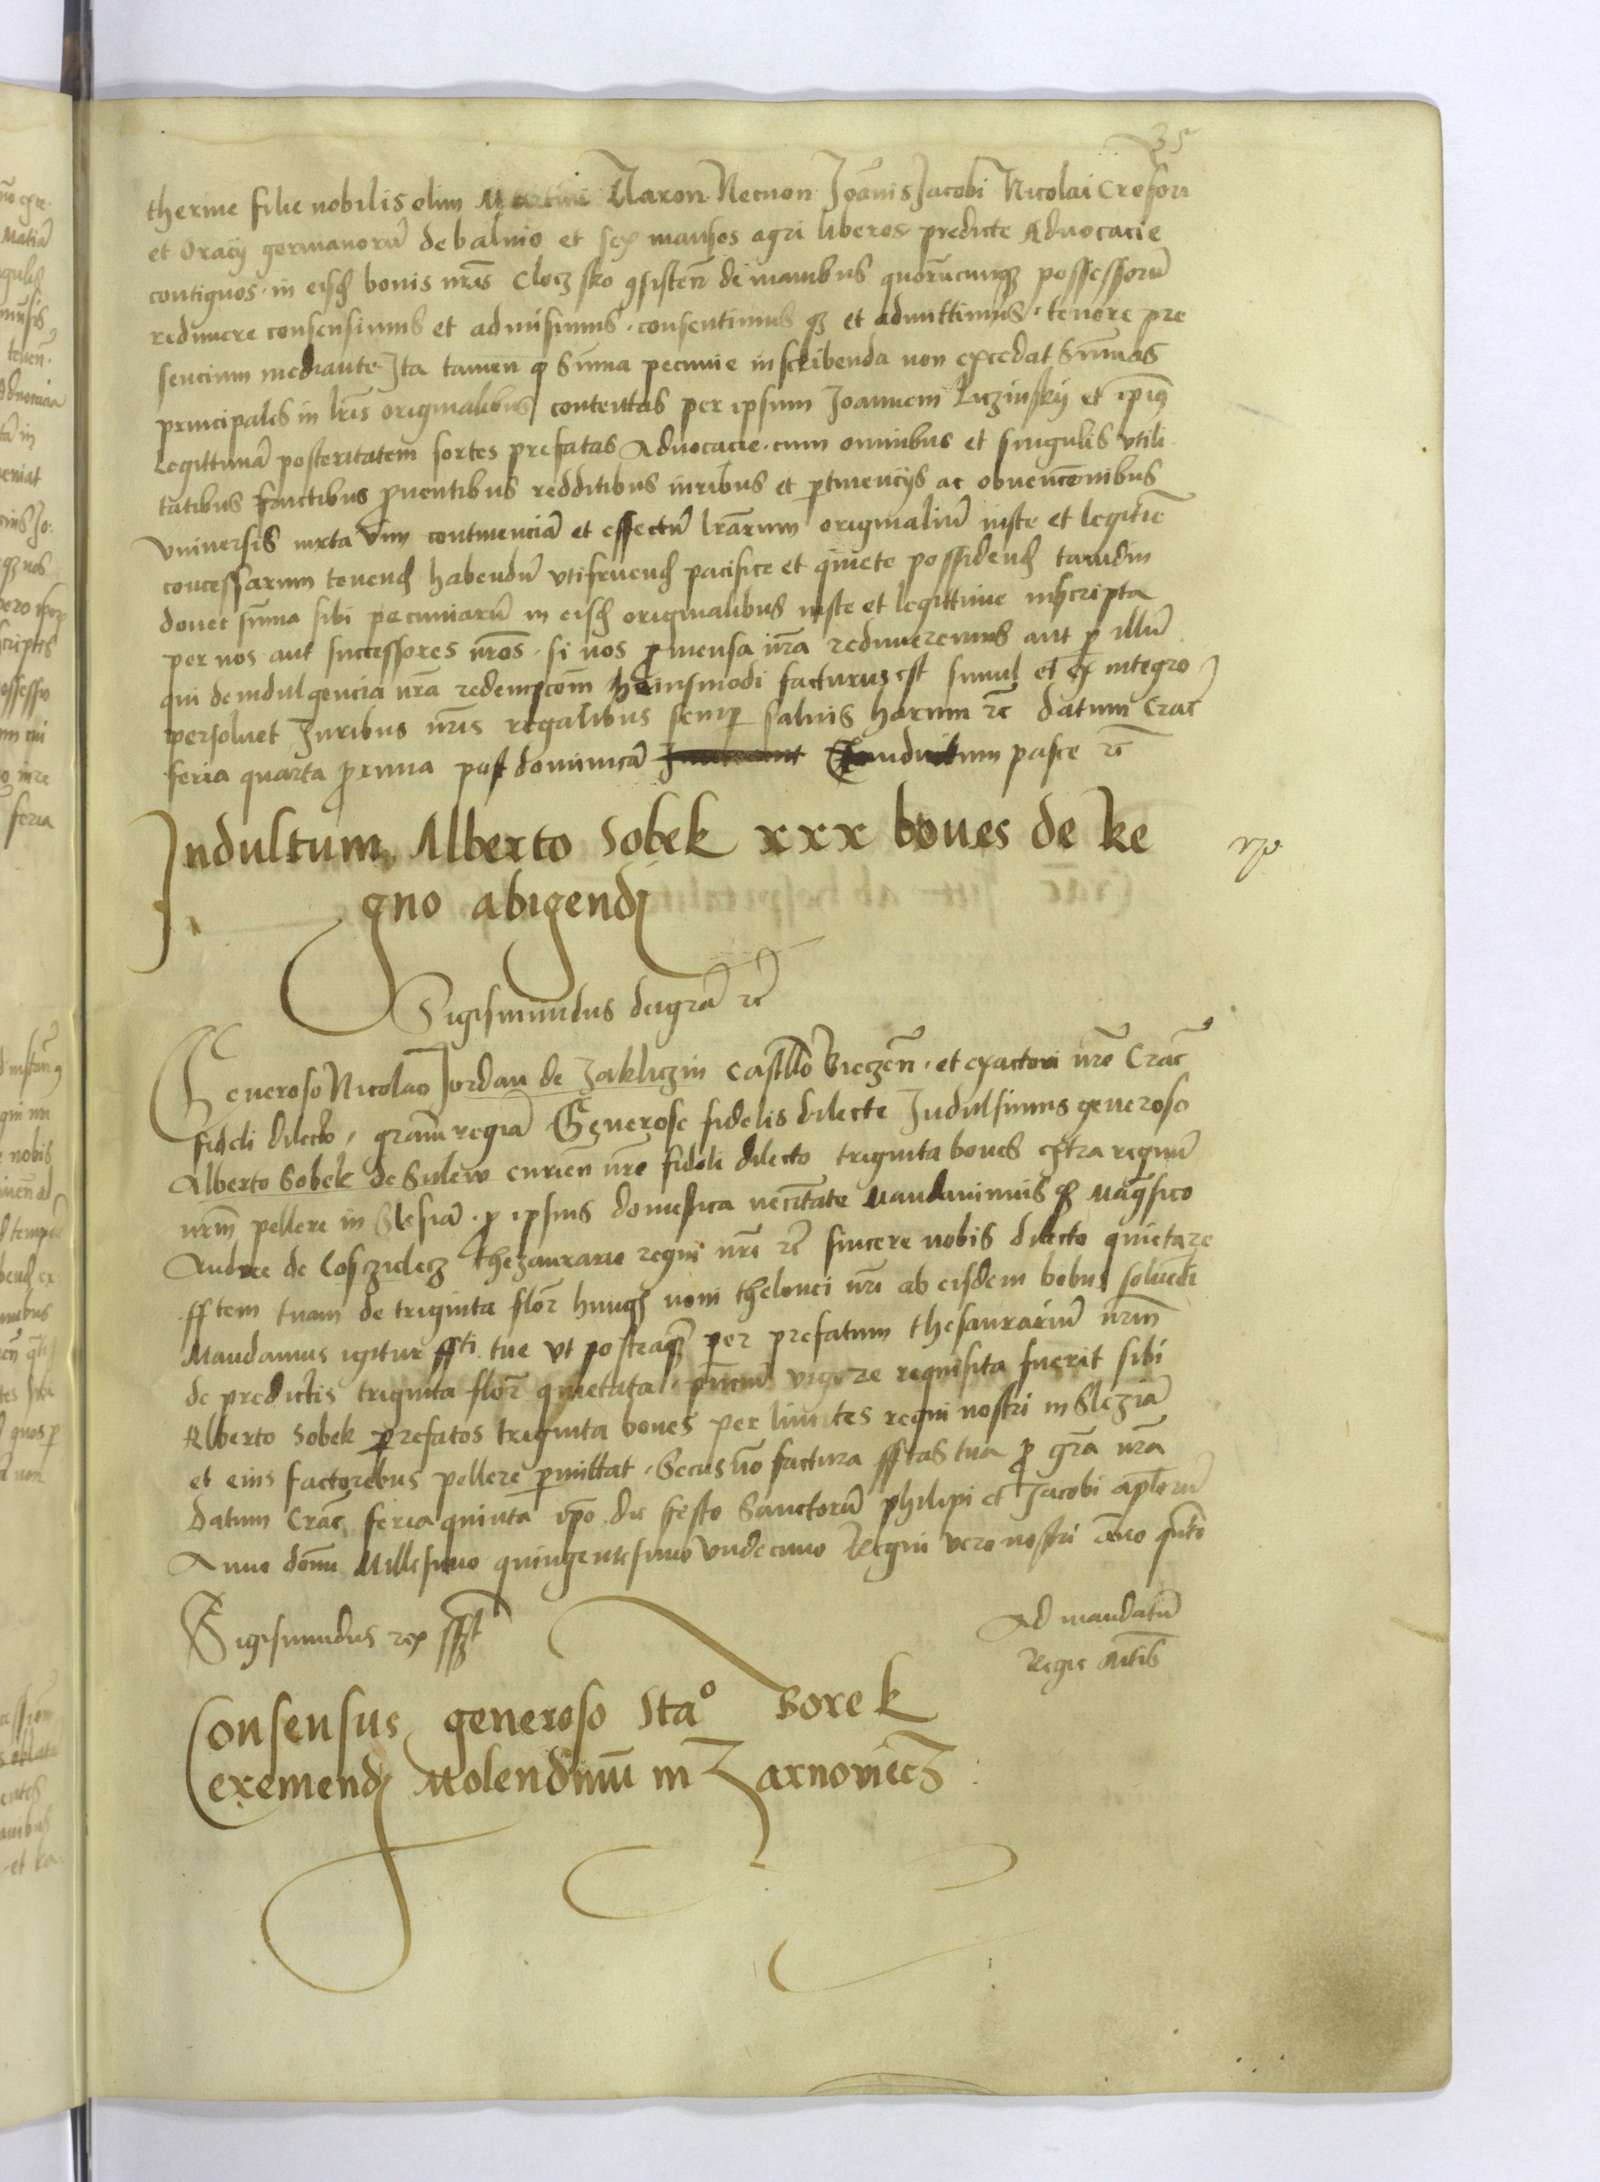 35
therine filie nobilis olim Martini Aaron Necnon Joānis Jacobi Nicolai
et Oracÿ germanorū de balnio et sex manßos agri liberos predicte Aduocacie
contiguos in eisđ bonis nr̄is de manibus quorūcunqꝫ possessorū
redimere consensimus et admisimus consentimus qꝫ et admittimus tenore pre
sencium mediante Ita tamen ꝙ Sūma pecunie inscribenda non excedat Sūmas
principales in lr̄is originalibus contentas per ipsum Joannem Liczinskÿ et ipiꝰ
Legittimā posteritatem sortes prefatas Aduocacie cum omnibus et singulis vtili
tatibus fructibus ꝓuentibus redditibus iuribus et ꝑtinencÿs ac obuencōnibus
vniuersis iuxta vim continenciā et effectū lr̄arum originaliū iuste et legitīe
concessarum tenenđ habendū vtifruenđ pacifice et quiete possidenđ tamdiu
donec sūma sibi pecuniarū in eisđ originalibus iuste et legittime inscripta
per nos aut successores nr̄os si nos ꝓ mensa nr̄a redimeremus aut ꝑ illū
qui de indulgencia nr̄a redempcōm huiusmodi facturus est simul et ex integro
persoluet Juribus nr̄is regalibus semꝑ saluis harum rc̄ datum Crac̄
feria quarta ꝓxima post dominicā Conductum pasce rc̄
Indultum Alberto Sobek xxx boues de Re
gno abigendi
Sigismundus dei gr̄a rc̄
Generoso Nicolao Jordan de Zakliczin Castllo Bieczen̄ et exactori nr̄o Crac̄
fideli dilecto gr̄am regiā Generose fidelis dilecte Indulsimus generoso
Alberto Sobek de Sulew curien̄ nr̄o fideli dilecto triginta boues extra regnū
nr̄m pellere in Slesiā ꝓ ipsius domestica necītate Mandauimus qꝫ Magfico
Andree de Cosczielecz Thezaurario regni nr̄i rc̄ sincere nobis dilecto quietare
ff tem tuam de triginta flor̄ hung noīe thelonei nr̄i ab eisdem bobus soluendi
Mandamus igitur ffti tue vt posteaqꝫ per prefatum thesaurariū nr̄m
de predictis triginta flor̄ quietata pn̄ciū vigore requisita fuerit sibi
Alberto Sobek prefatos triginta boues per limites regni nostri in Sleziā
et eius factoribus pellere ꝑmittat Secus nō factura fftas tua ꝓ gr̄a nr̄a
Datum Crac̄ feria quinta ip̄o die festo Sanctorū philipi et Jacobi aplorū
Anno domī Millesimo quingentesimo vndecimo Regni vero nostri āno qnto
Sigismundus rex sst
Ad mandatū
Regie Mtis
Consensus generoso Sta° Borek
exemendi Molendinū in Zarnoviecz